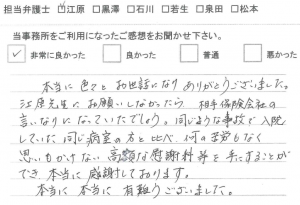 担当弁護士 □江原 □黒澤 □石川 □若生 □泉田 □松本
当事務所をご利用になったご感想をお聞かせ下さい。
✓ 非常に良かった 良かった 普通 悪かった
本当に色々とお世話になりありがとうございました。
江原先生にお願いしなかったら 相手保険会社の
言いなりになっていたでしょう。同じような事故で入院
していた同じ病室の方と比べ、何の苦労もなく
思いもかけない高額な慰謝料等を手にすることが
でき 本当に感謝しております。
本当に 本当に 有難うございました。